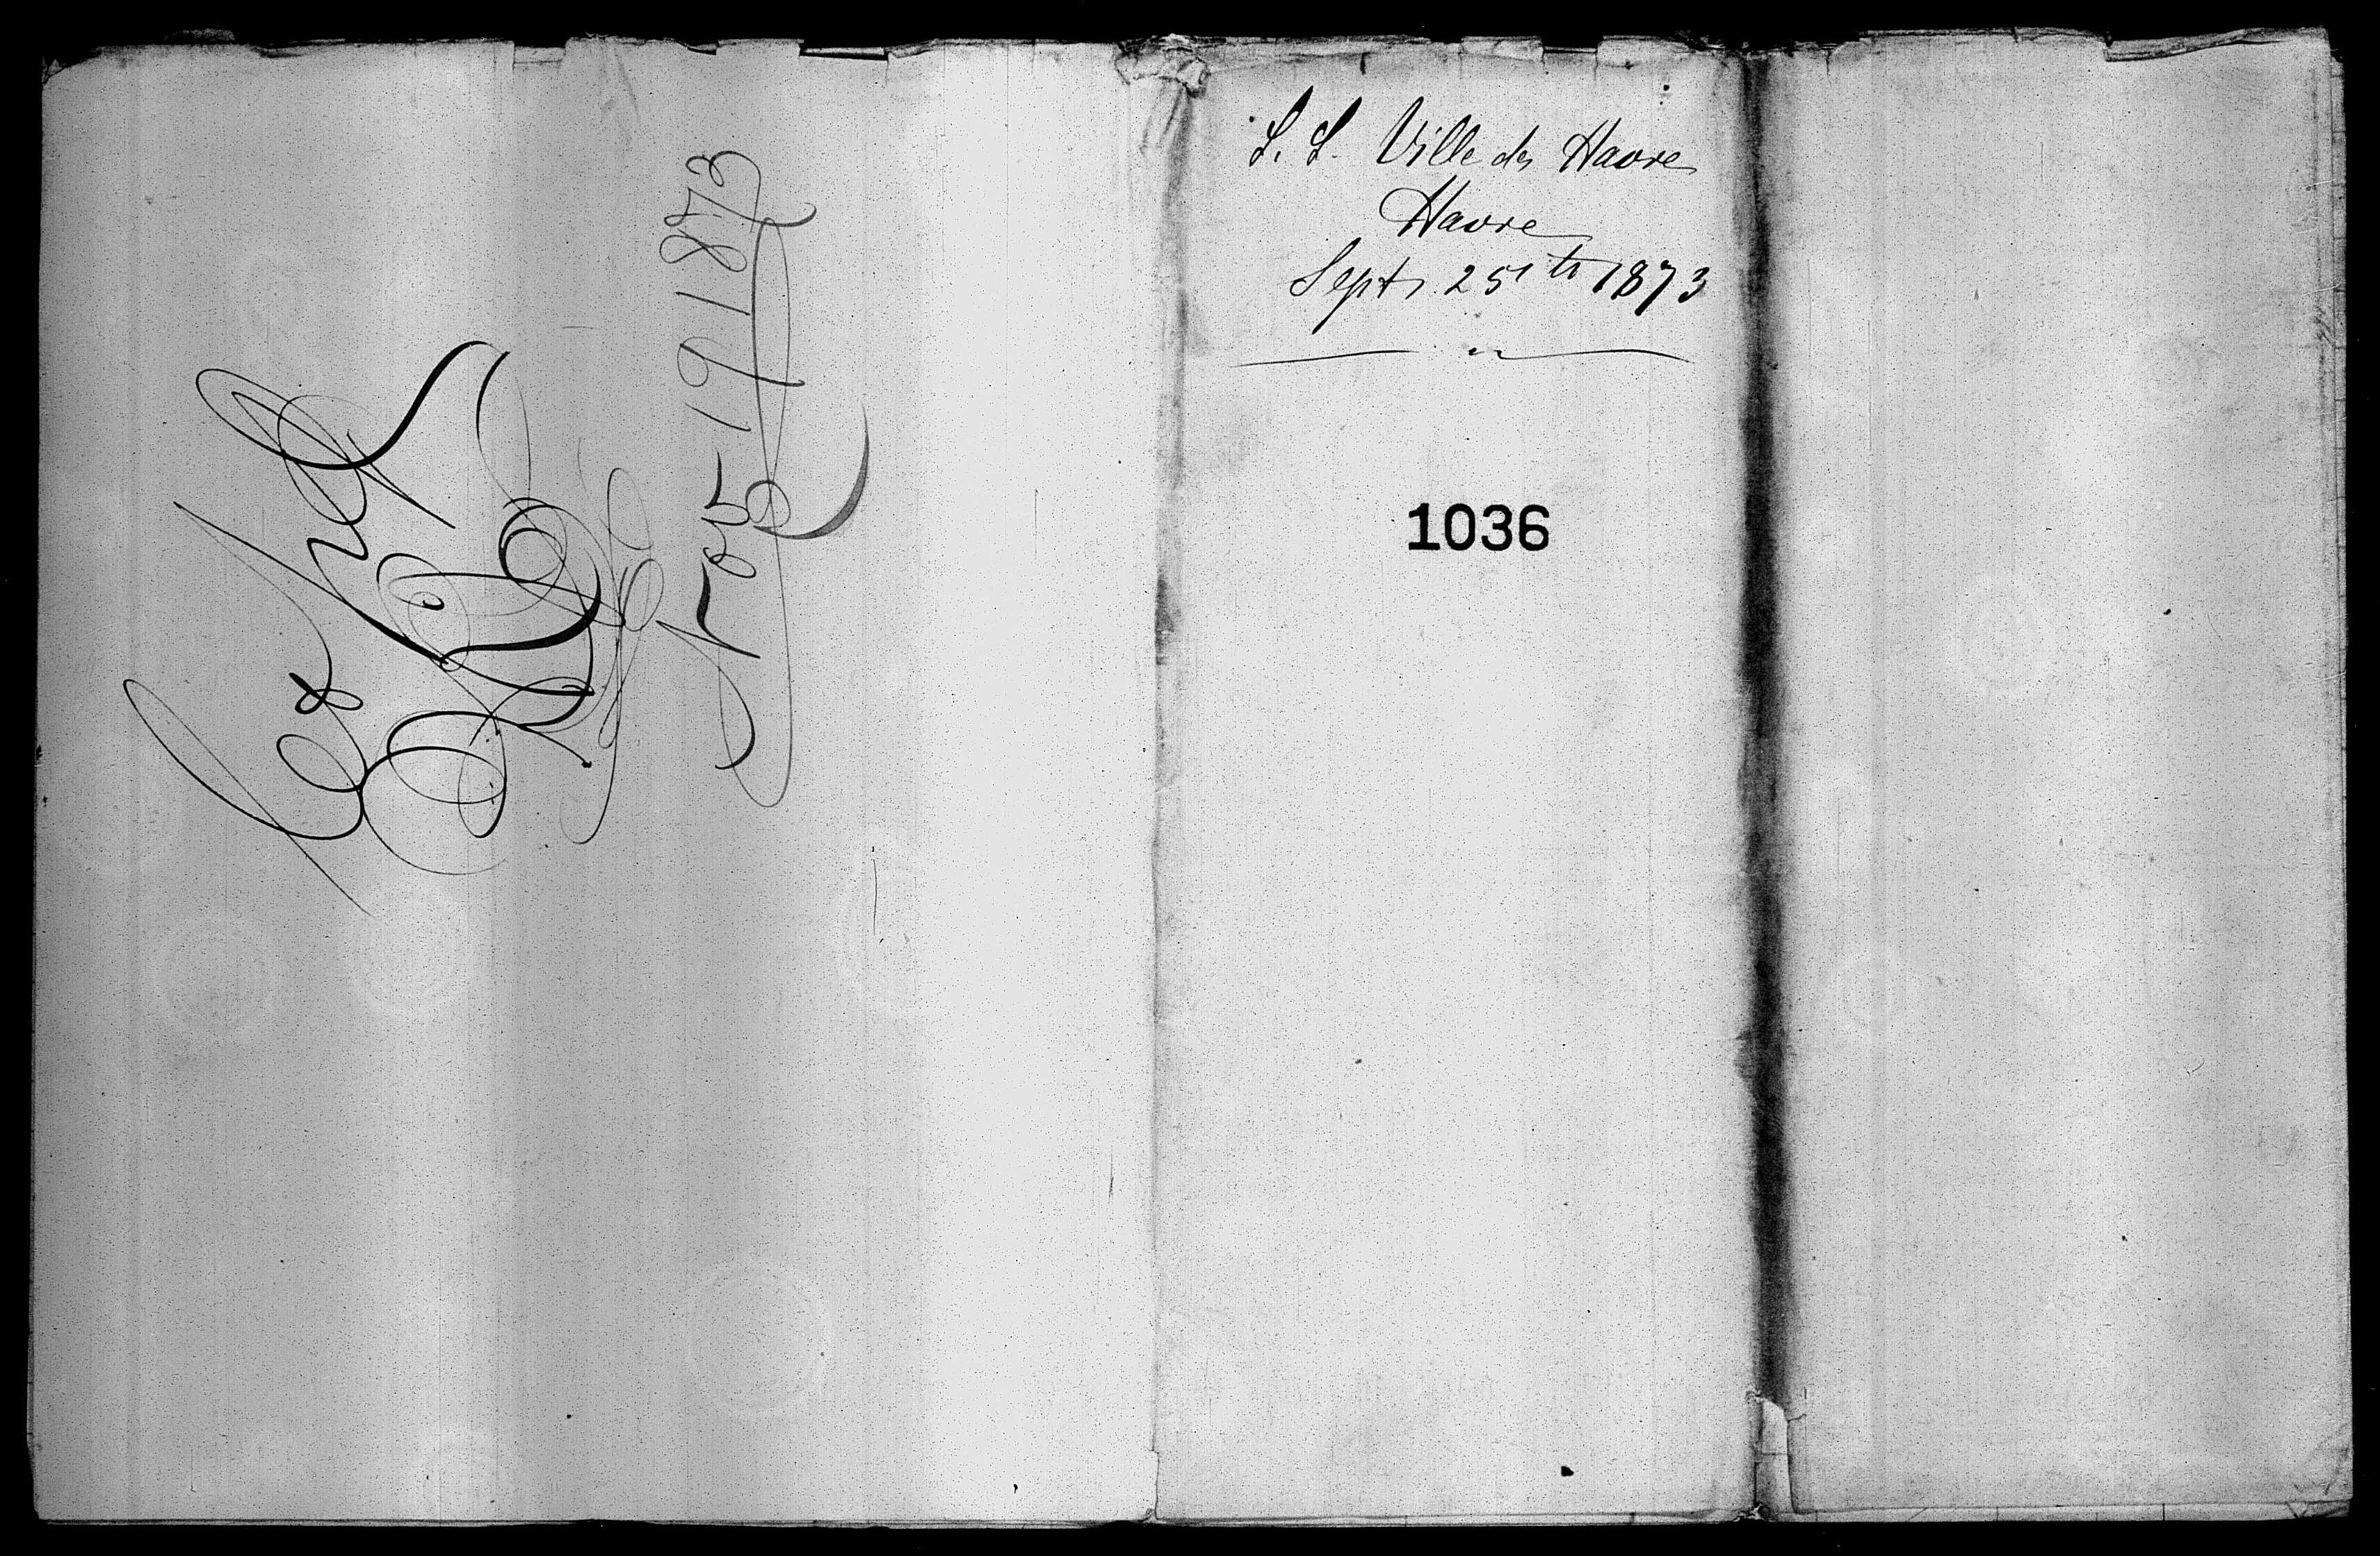 Nov 19 1873
S. S. Ville de Havre
Havre
Sept 25th 1873
1036